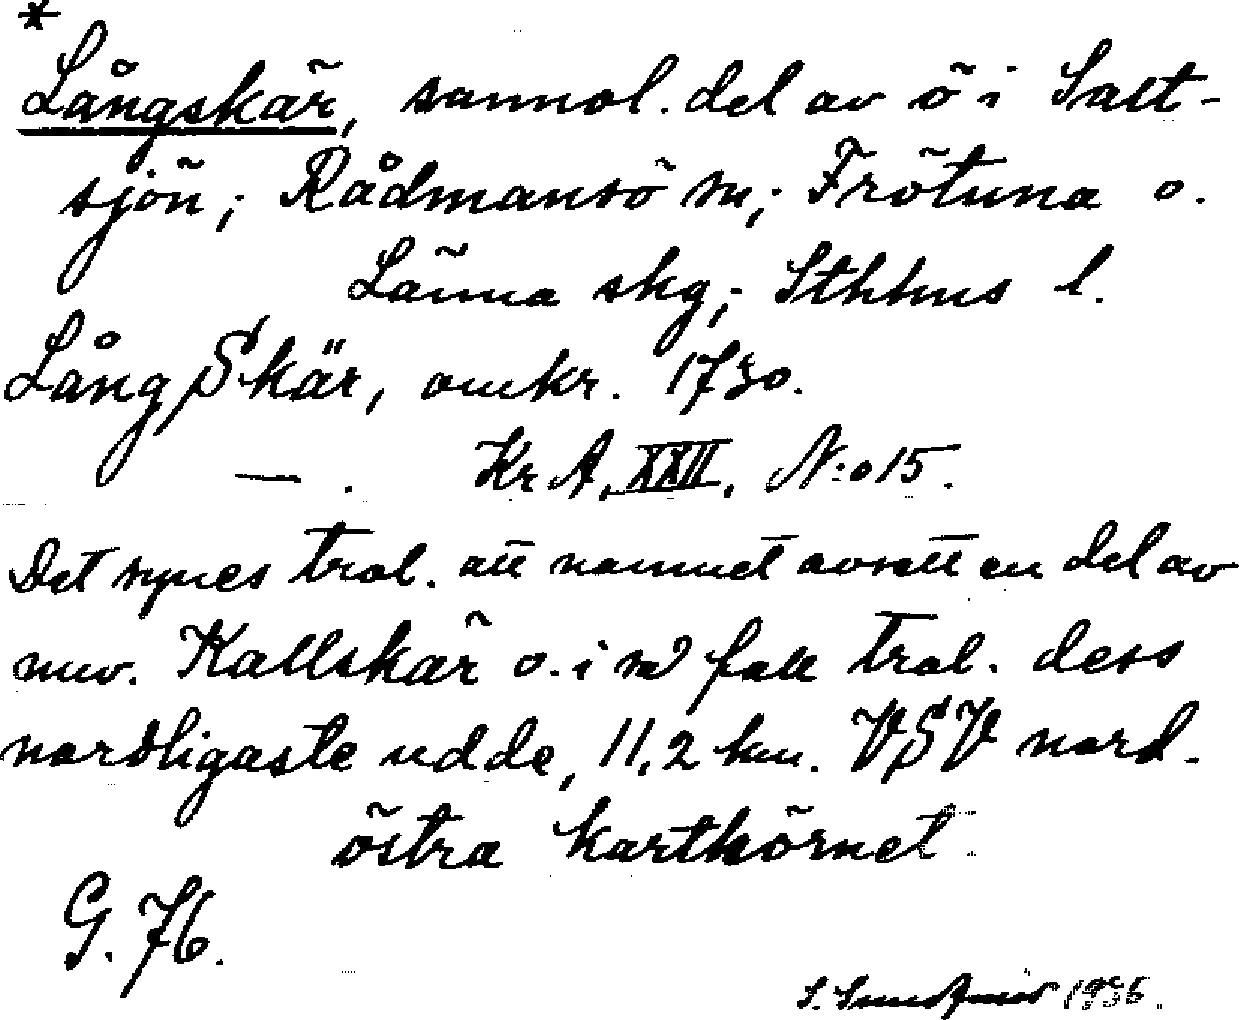 *
Långskär, sannol. del av ö i Salt-
sjön; Rådmansö sn; Frötuna o.
Länna skg; Sthlms l.
Lång Skär, omkr. 1730.
— . KrA, XXII, N:o 15.
Det synes trol. att namnet avsett en del av
nuv. Kallskär o. i så fall trol. dess
nordligaste udde, 11,2 km. VSV nord-
östra karthörnet.
G. 76.
S. 1936.